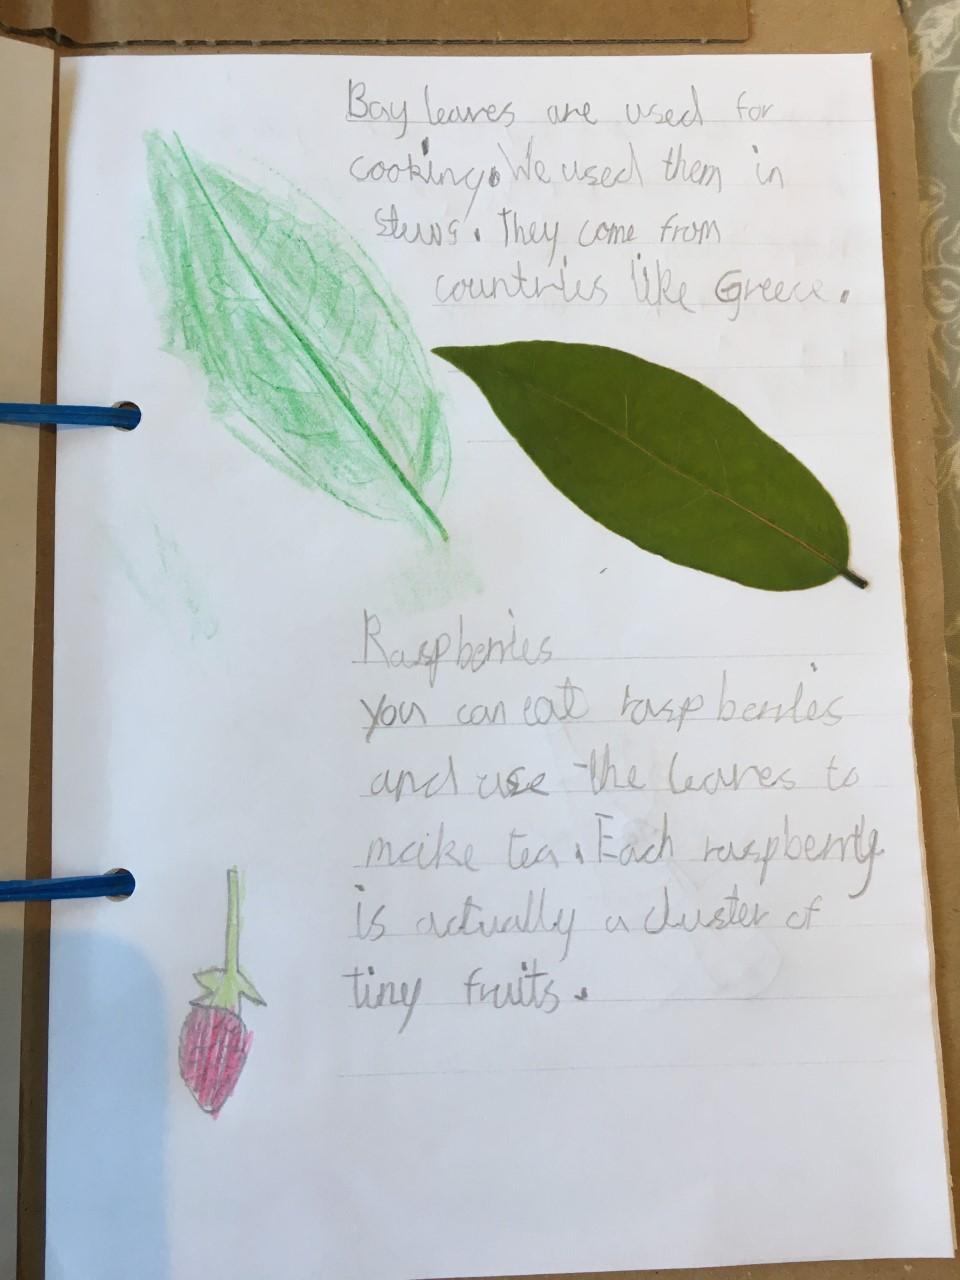 Bay leaves are used for
cooking. We used them in
stews. They come from
countries like Greece.
Raspberries
you can eat raspberries
and use the leaves to
make tea. Each raspberry
is actually a cluster of
tiny fruits.